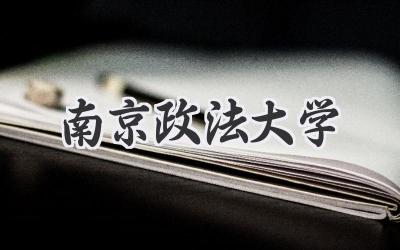 南京政法大学